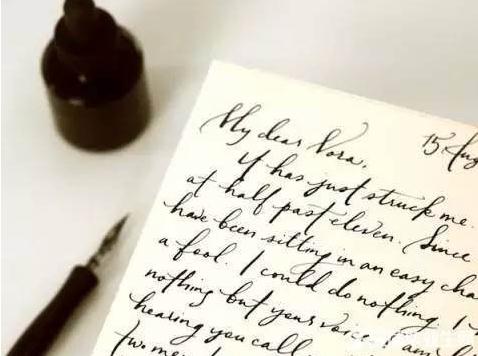 My dear Nora,
15 Aug
It has just struck me.
at half past eleven. Since
have been sitting in an easy cha
a fool. I could do nothing. I
nothing but your voice. I am
hearing you call
two men